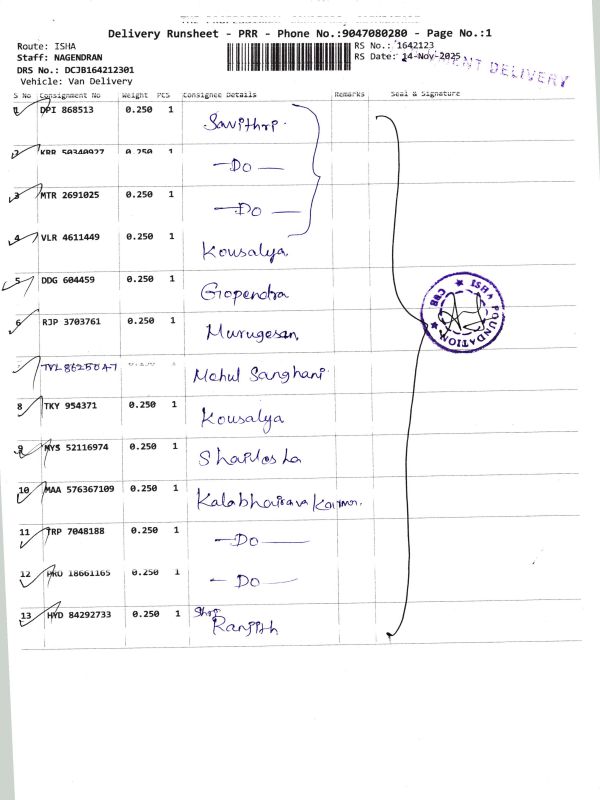 Delivery Runsheet - PRR - Phone No.:9047080280 - Page No.:1
Route: ISHA
RS No.: 1642123
Staff: NAGENDRAN
RS Date: 14-Nov-2025
DRS No.: DCJB164212301
DELIVERY
Vehicle: Van Delivery
S No Consignment No Weight PCS Consignee Details Remarks Seal & Signature
1 DPI 868513 0.250 1 Savithri.
2 KRR 50340927 0.250 1 -Do-
3 MTR 2691025 0.250 1 -Do-
4 VLR 4611449 0.250 1 Kousalya
5 DDG 604459 0.250 1 Gopendra
6 RJP 3703761 0.250 1 Murugesan
TVL 8625047 Mehul Sanghani
8 TKY 954371 0.250 1 Kousalya
9 MYS 52116974 0.250 1
10 MAA 576367109 0.250 1 Kalabhairava
11 TRP 7048188 0.250 1 -Do-
12 PRO 18661165 0.250 1 -Do-
13 HYD 84292733 0.250 1 Ranjith
ISHA FOUNDATION
CBE